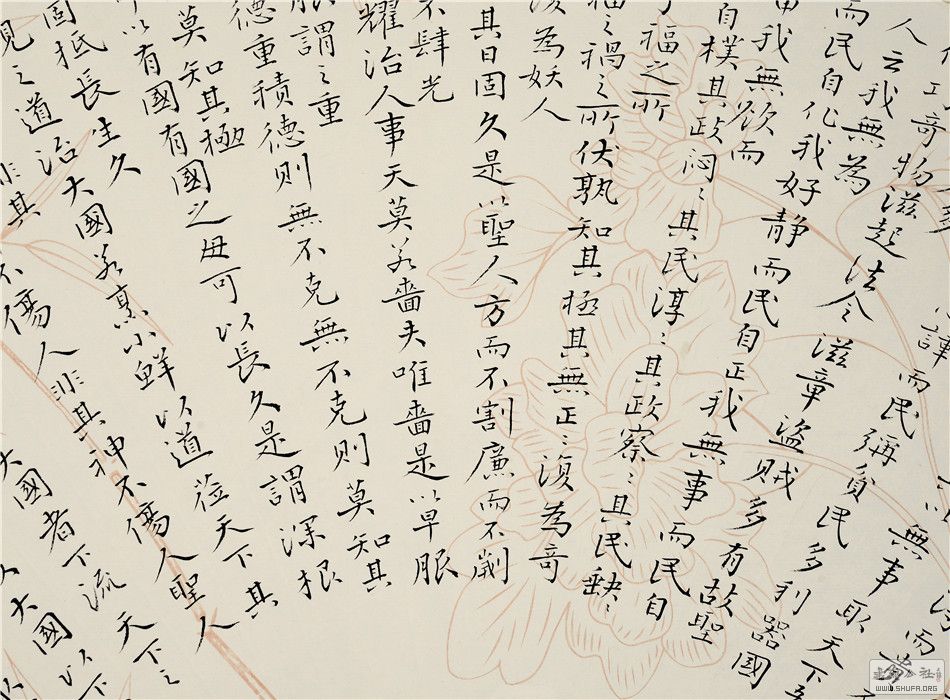 無事取天下
諱而民彌貧民多利器國
工奇物滋起法令滋章盜賊多有故聖
人云我無為
而民自化我好靜而民自正我無事而民自
我無欲而
自樸其政悶〻其民淳〻其政察〻其民缺〻
福之所
禍之所伏孰知其極其無正〻復為奇
復為妖人
其日固久是以聖人方而不割廉而不劌
不肆光
耀治人事天莫若嗇夫唯嗇是以早服
謂之重
德重積德則無不克無不克則莫知其
莫知其極
以有國有國之母可以長久是謂深根
固柢長生久
視之道治大國若烹小鮮以道莅天下其
非其
不傷人非其神不傷人聖人
大國者下流天下之
大國以下
WWW.SHUFA.ORG